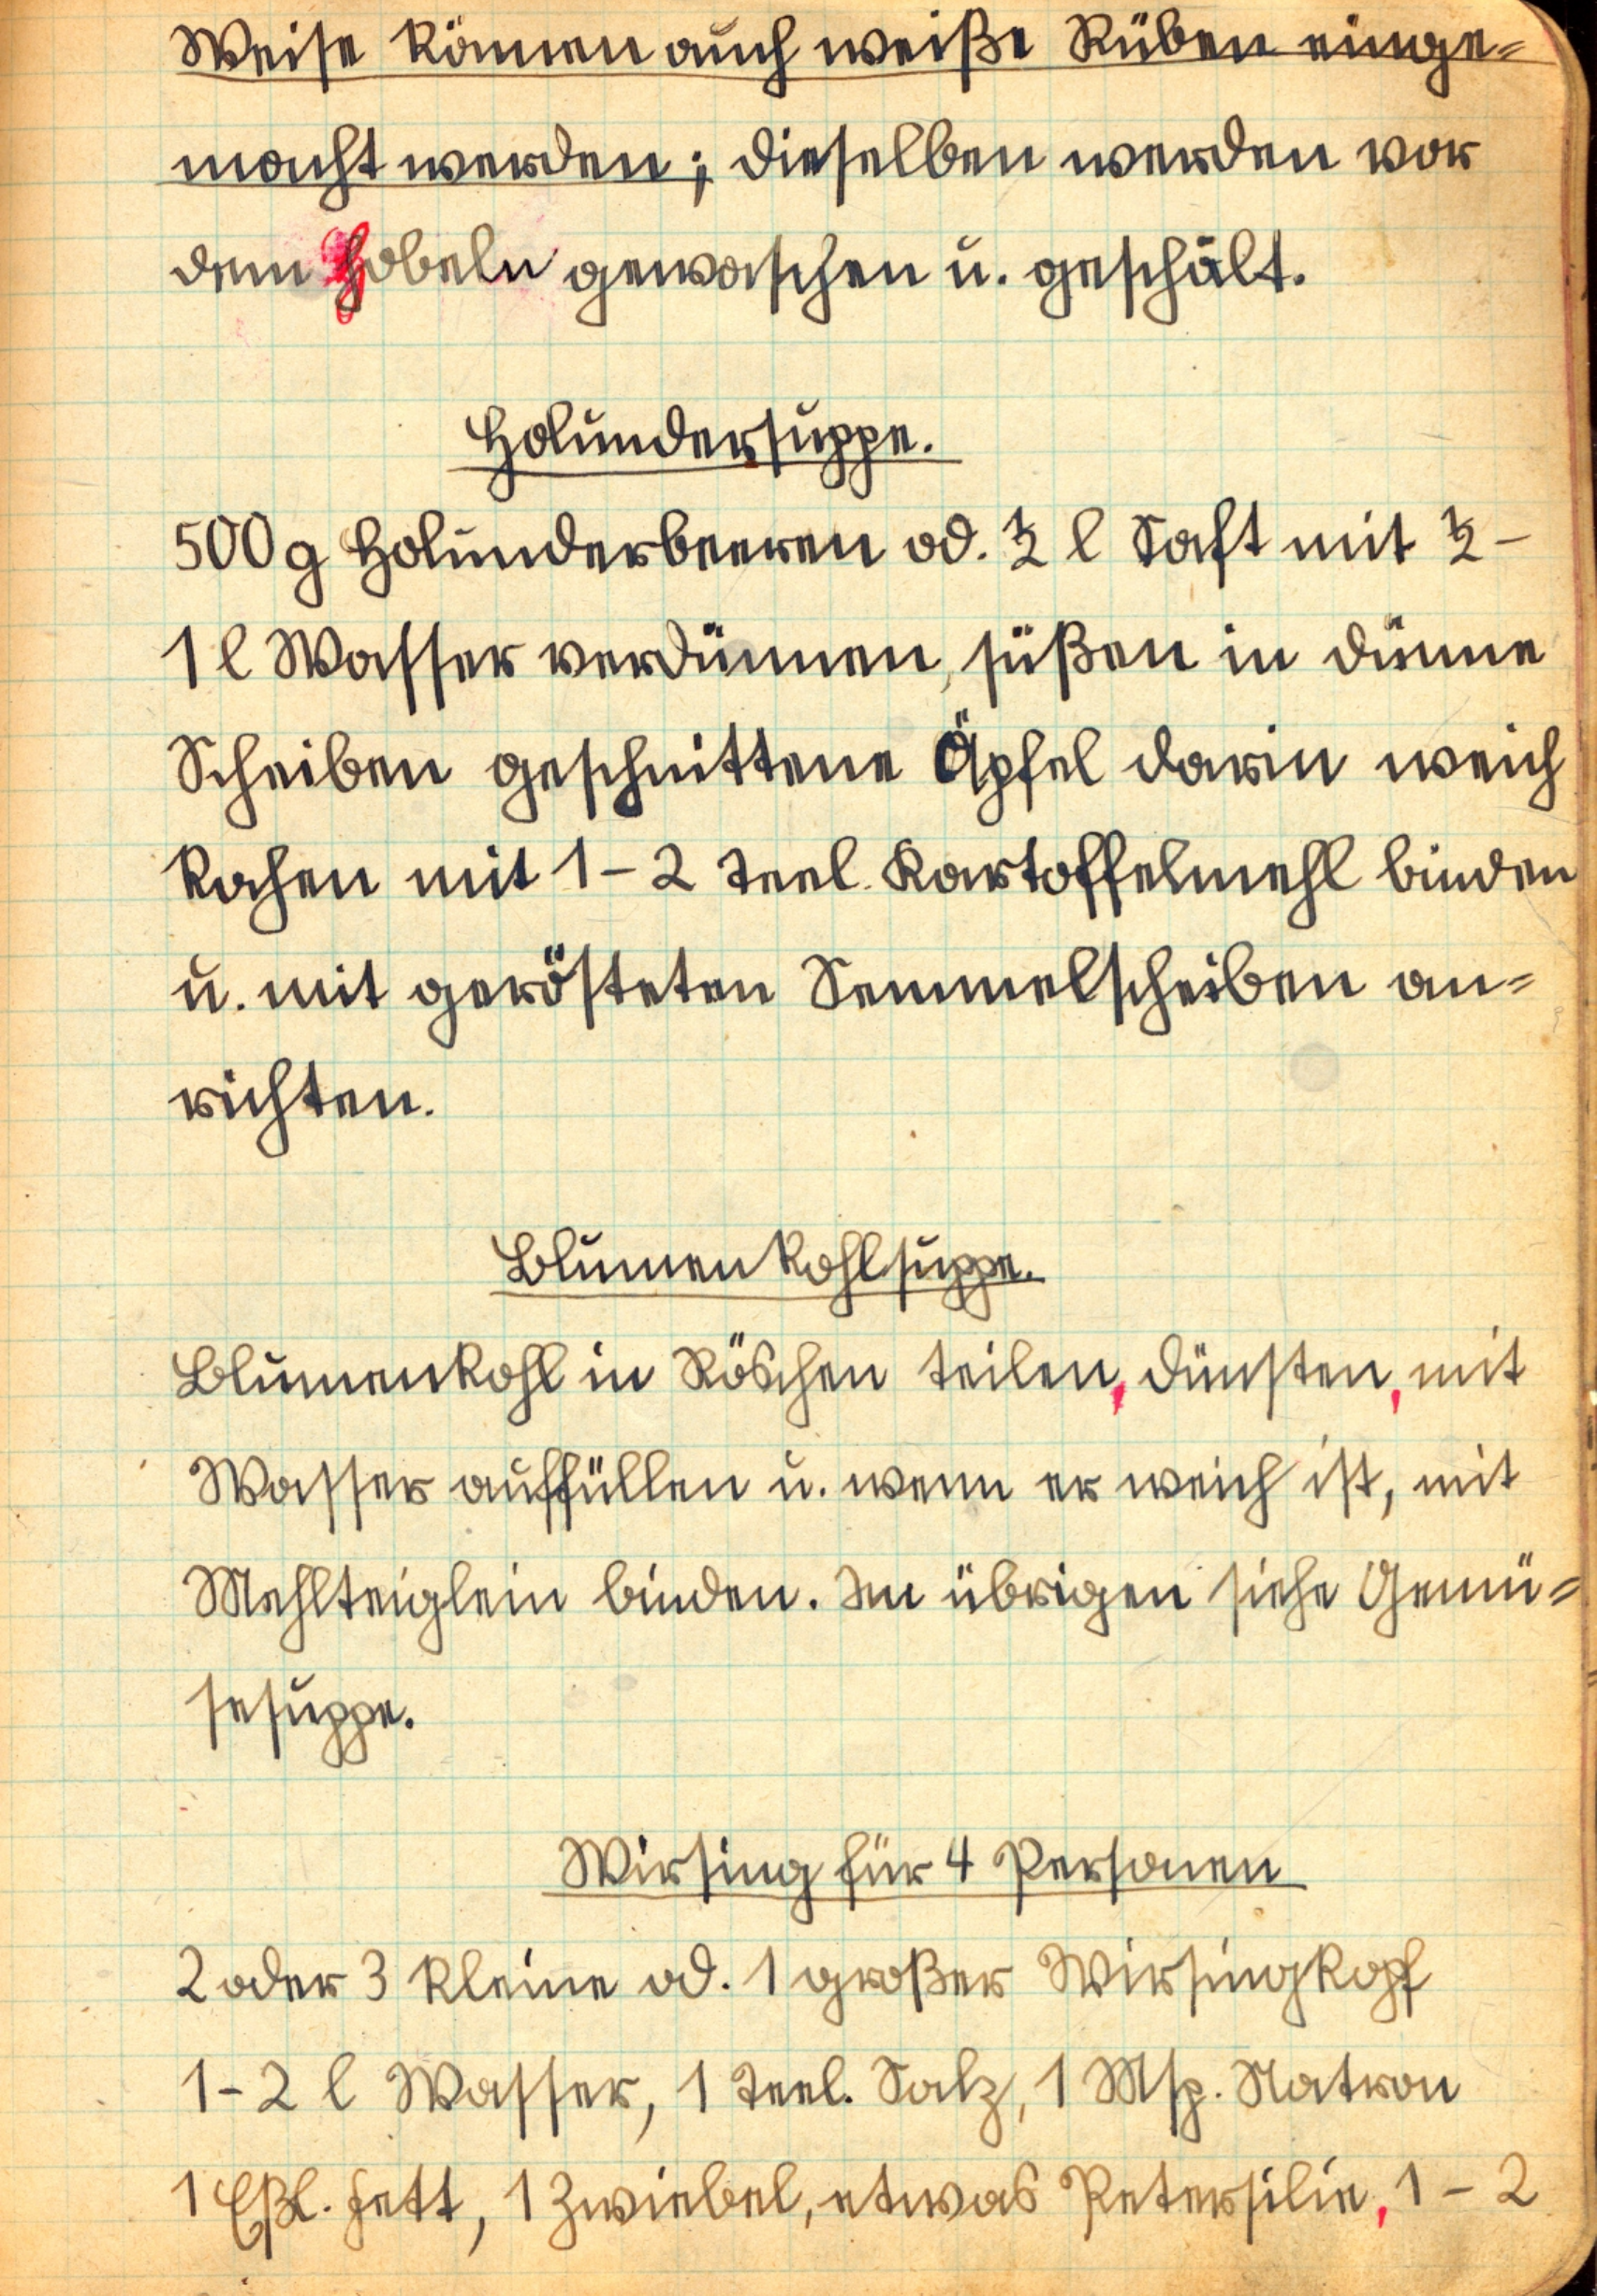 Weise können auch weiße Rüben einge-
macht werden; dieselben werden vor
dem Hobeln gewaschen u. geschält.
Holundersuppe.
500 g Holunderbeeren od. ½ l Saft mit ½ -
1 l Wasser verdünnen, süßen in dünne
Scheiben geschnittene Äpfel darin weich
kochen mit 1 - 2 Teel. Kartoffelmehl binden
u. mit gerösteten Semmelscheiben an-
richten.
Blumenkohlsuppe.
Blumenkohl in Röschen teilen, dünsten, mit
Wasser auffüllen u. wenn er weich ist, mit
Mehlteiglein binden. Im übrigen siehe Gemü-
sesuppe.
Wirsing für 4 Personen
2 oder 3 kleine od. 1 großer Wirsingkopf
1 - 2 l Wasser, 1 Teel. Salz, 1 Msp. Natron
1 Eßl. Fett, 1 Zwiebel, etwas Petersilie, 1 - 2